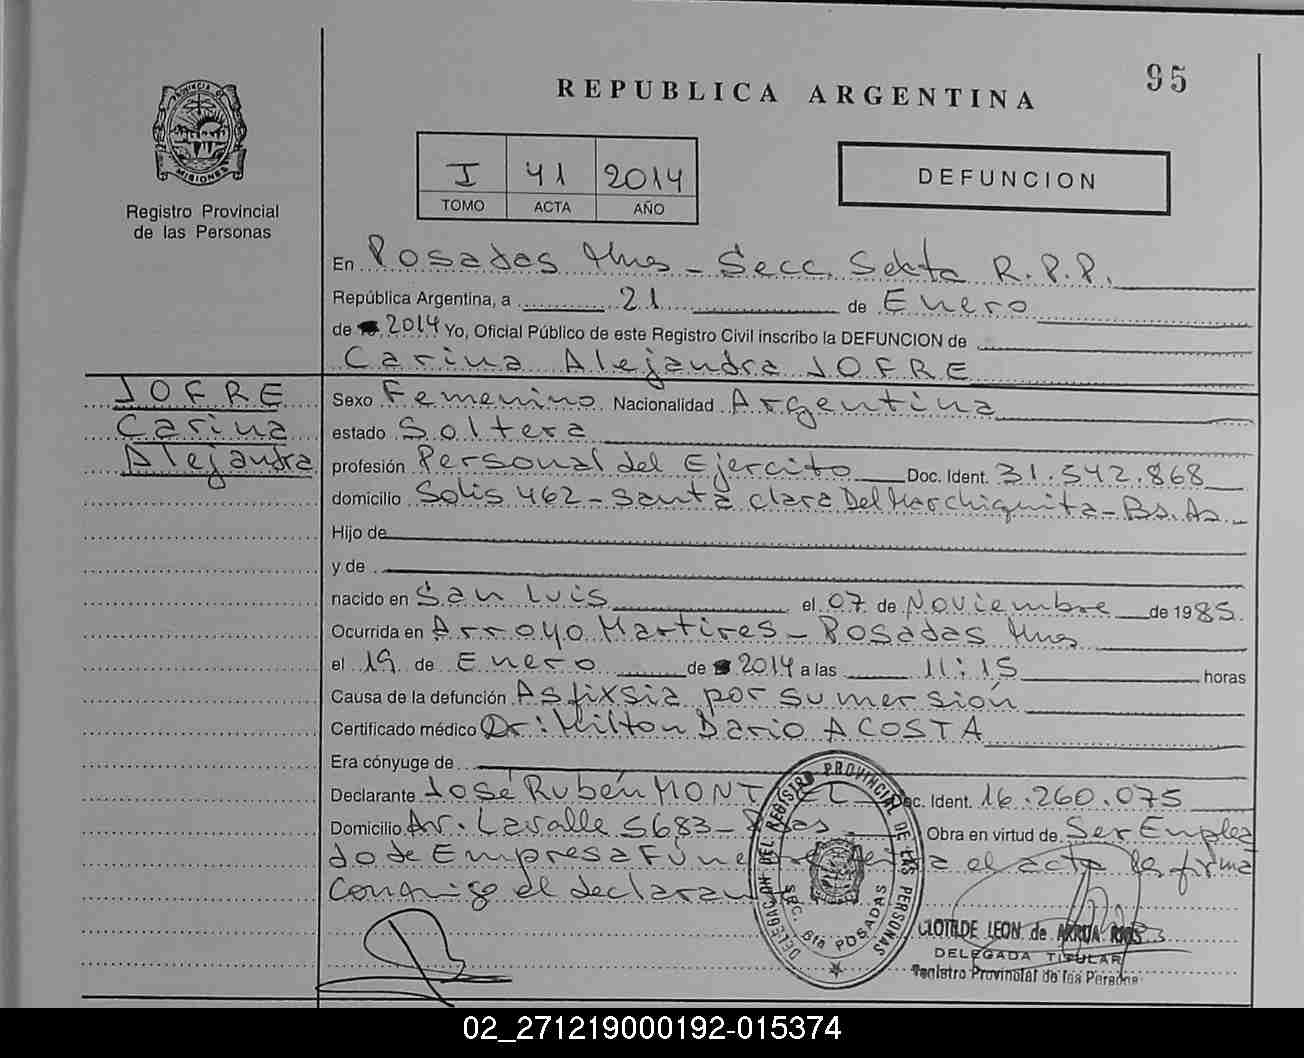 95
REPUBLICA ARGENTINA
PROVINCIA DE MISIONES
Registro Provincial
de las Personas
I 41 2014
TOMO ACTA AÑO
DEFUNCION
En Posadas Mnes - Secc. Sexta R.P.P.
República Argentina, a 21 de Enero
de 2014 Yo, Oficial Público de este Registro Civil inscribo la DEFUNCION de
Carina Alejandra JOFRE
JOFRE
Carina
Alejandra
Sexo Femenino Nacionalidad Argentina
estado Soltera
profesión Personal del Ejercito Doc. Ident. 31.542.868
domicilio Solis 462 - Santa Clara Del Mar Chiquita - Bs. As. -
Hijo de
y de
nacido en San Luis el 07 de Noviembre de 1985.
Ocurrida en Arroyo Martires - Posadas Mnes
el 19 de Enero de 2014 a las 11:15 horas
Causa de la defunción Asfixsia por sumersión
Certificado médico Dr: Milton Dario ACOSTA
Era cónyuge de
Declarante José Rubén MONT EL Doc. Ident. 16.260.075
Domicilio Av. Lavalle 5683 - Psas Obra en virtud de Ser Emplea
do de Empresa Fúnebre el acta la firma
conmigo el declarante
DELEGACION DEL REGISTRO PROVINCIAL DE LAS PERSONAS
SEC. 6ta POSADAS
CLOTILDE LEON de ARRUA RIOS
DELEGADA TITULAR
Registro Provincial de las Personas
02_271219000192-015374